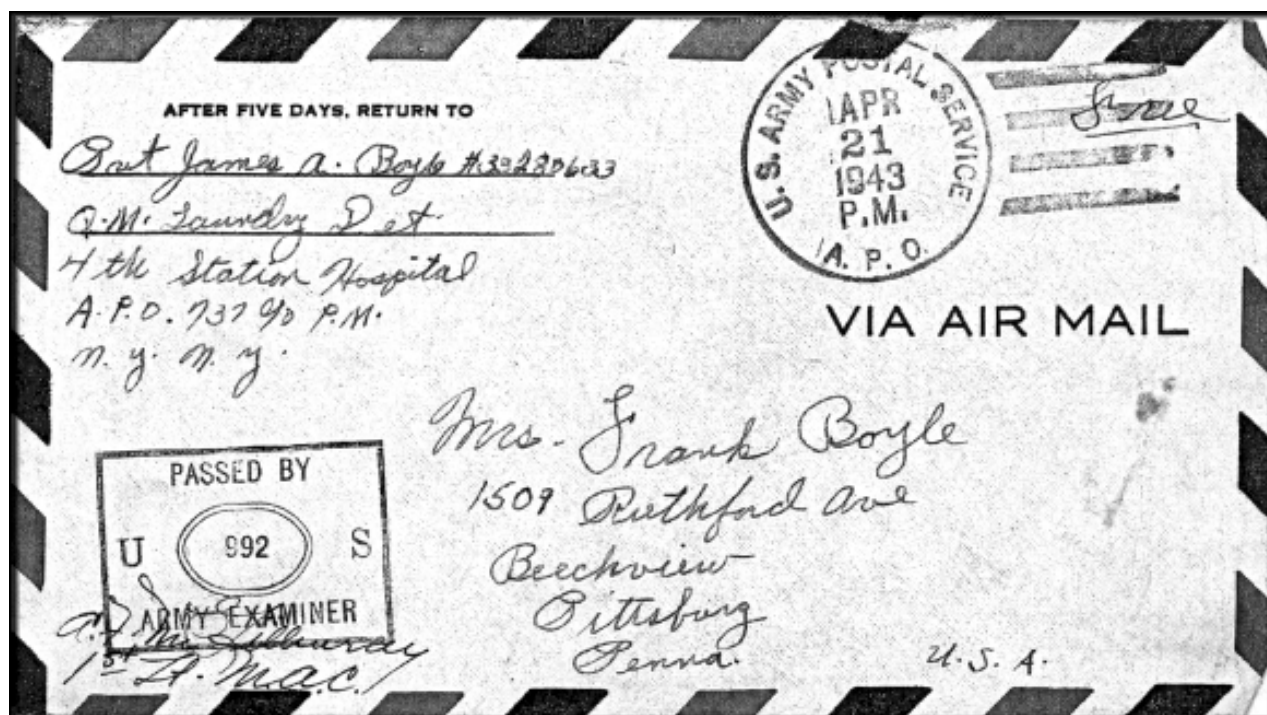 AFTER FIVE DAYS, RETURN TO
Pvt James A. Boyle #39220633
Q.M. Laundry Det.
4th Station Hospital
A.P.O. 737 c/o P.M.
N.Y. N.Y.
U.S. ARMY POSTAL SERVICE
APR
21
1943
P.M.
A.P.O.
Free
VIA AIR MAIL
Mrs. Frank Boyle
1509 Ruthford Ave
Beechview
Pittsburg
Penna.
U.S.A.
PASSED BY
U 992 S
ARMY EXAMINER
1st Lt. M.A.C.